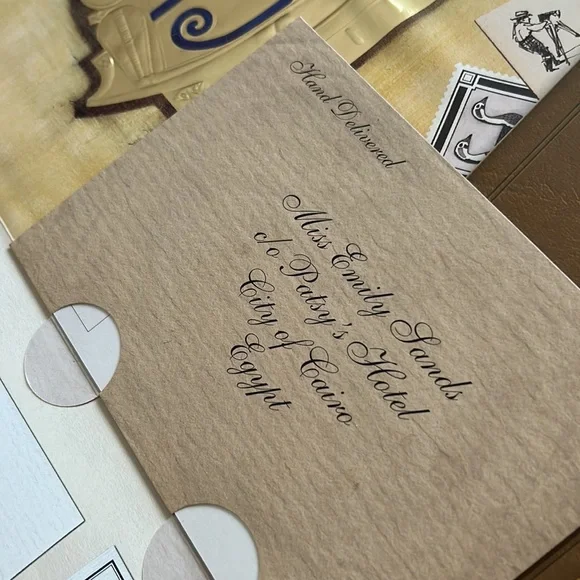 Hand Delivered
Miss Emily Sands
c/o Patsy's Hotel
City of Cairo
Egypt